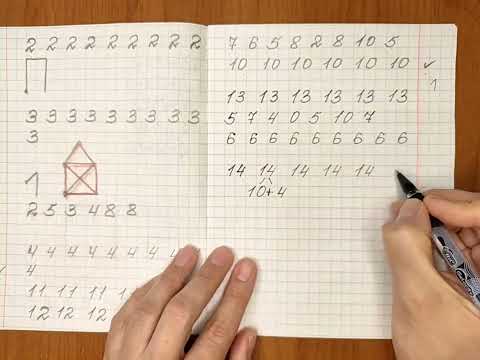 2 2 2 2 2 2 2 2 2
3 3 3 3 3 3 3 3 3
3
1
2 5 3 4 8 8
4 4 4 4 4 4 4 4
4
11 11 11 11
12 12 12
7 6 5 8 2 8 10 5
10 10 10 10 10 10
1
13 13 13 13 13 13
5 7 4 0 5 10 7
6 6 6 6 6 6 6 6 6
14 14 14 14 14
10+4